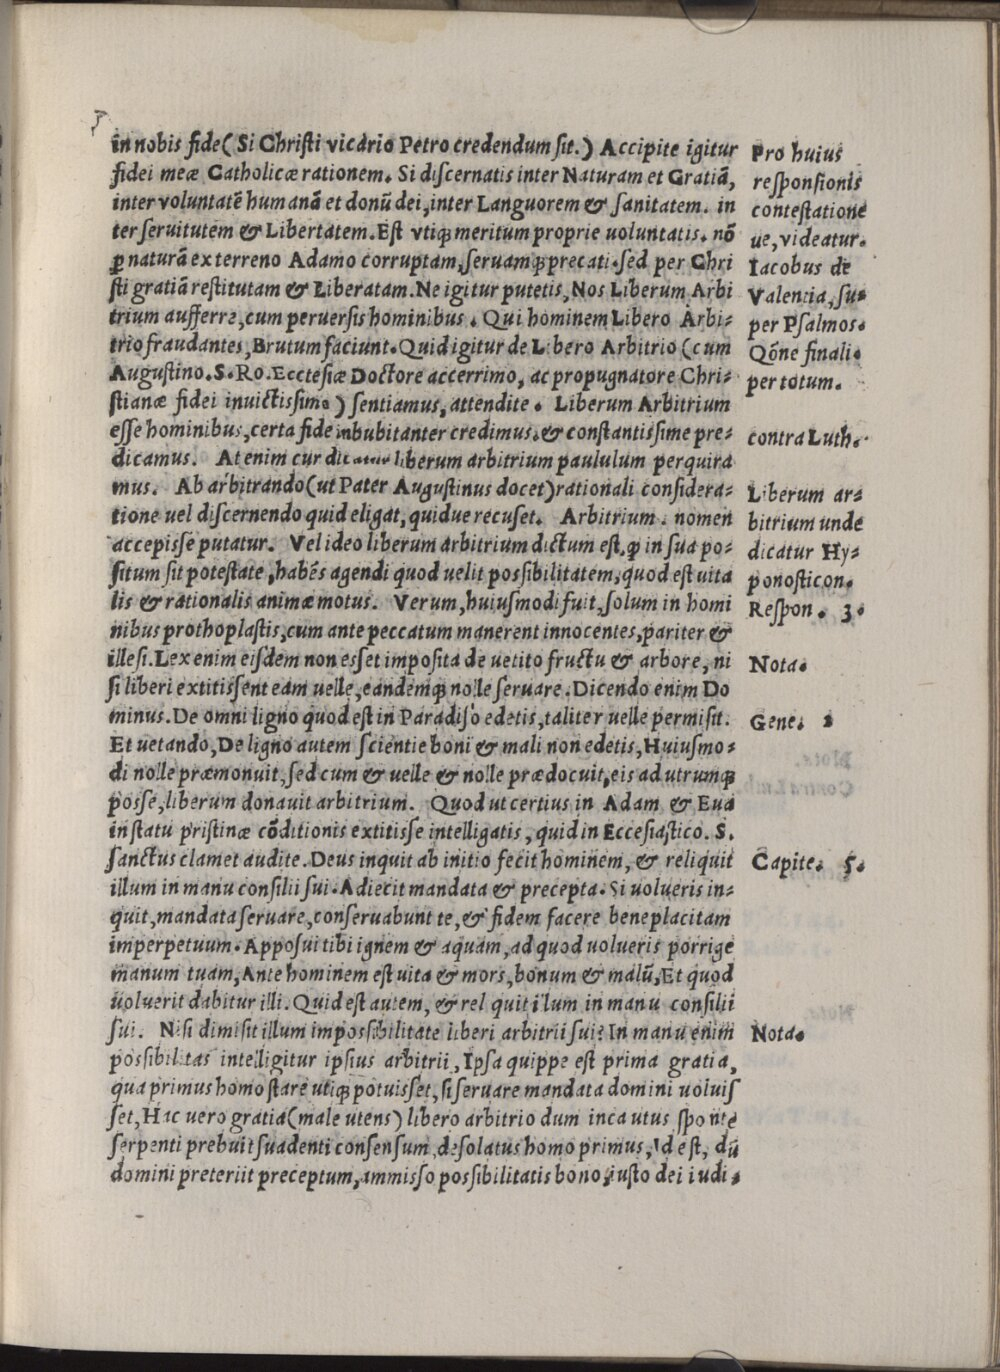 in nobis fide (Si Christi vicario Petro credendum sit.) Accipite igitur
fidei meæ Catholicæ rationem. Si discernatis inter Naturam et Gratiã,
inter voluntatẽ humanã et donũ dei, inter Languorem & sanitatem. in
ter seruitutem & Libertatem. Est vtiqꝫ meritum proprie uoluntatis. nõ
ꝑ naturã ex terreno Adamo corruptam, seruamqꝫ precati. sed per Chri
sti gratiã restitutam & Liberatam. Ne igitur putetis, Nos Liberum Arbi
trium aufferre, cum peruersis hominibus. Qui hominem Libero Arbi-
trio fraudantes, Brutum faciunt. Quid igitur de Libero Arbitrio (cum
Augustino. S. Ro. Ecctesiæ Doctore accerrimo, ac propugnatore Chri-
stianæ fidei inuictissimo) sentiamus, attendite. Liberum Arbitrium
esse hominibus, certa fide inbubitanter credimus. & constantissime pre-
dicamus. At enim cur dicatur liberum arbitrium paululum perquira
mus. Ab arbitrando (ut Pater Augustinus docet) rationali considera-
tione uel discernendo quid eligat, quidue recuset. Arbitrium. nomen
accepisse putatur. Vel ideo liberum arbitrium dictum est, ꝙ in sua po-
situm sit potestate, habẽs agendi quod uelit possibilitatem, quod est uita
lis & rationalis animæ motus. Verum, huiusmodi fuit, solum in homi
nibus prothoplastis, cum ante peccatum manerent innocentes, pariter &
illesi. Lex enim eisdem non esset imposita de uetito fructu & arbore, ni
si liberi extitissent eam uelle, eandemqꝫ nolle seruare. Dicendo enim Do
minus. De omni ligno quod est in Paradiso edetis, taliter uelle permisit.
Et uetando, De ligno autem scientie boni & mali non edetis, Huiusmo-
di nolle præmonuit, sed cum & uelle & nolle prædocuit, eis ad utrumqꝫ
posse, liberum donauit arbitrium. Quod ut certius in Adam & Eua
in statu pristinæ cõditionis extitisse intelligatis, quid in Eccesiastico. S.
sanctus clamet audite. Deus inquit ab initio fecit hominem, & reliquit
illum in manu consilii sui. Adiecit mandata & precepta. Si uolueris in-
quit, mandata seruare, conseruabunt te, & fidem facere beneplacitam
imperpetuum. Apposui tibi ignem & aquam, ad quod uolueris porrige
manum tuam, Ante hominem est uita & mors, bonum & malũ, Et quod
uoluerit dabitur illi. Quid est autem, & rel quit illum in manu consilii
sui. Nisi dimisit illum impossibilitate liberi arbitrii sui? In manu enim
possibilitas intelligitur ipsius arbitrii, Ipsa quippe est prima gratia,
qua primus homo stare utiqꝫ potuisset, si seruare mandata domini uoluis
set, Hac uero gratia (male utens) libero arbitrio dum incautus sponte
serpenti prebuit suadenti consensum, desolatus homo primus, Id est, dũ
domini preteriit preceptum, ammisso possibilitatis bono, iusto dei iudi-
Pro huius
responsionis
contestatione
ue, videatur.
Iacobus de
Valentia, su-
per Psalmos.
Qõne finali.
per totum.
contra Luth.
Liberum ar-
bitrium unde
dicatur Hy-
ponosticon.
Respon. 3.
Nota.
Gene. 2
Capite. 5.
Nota.